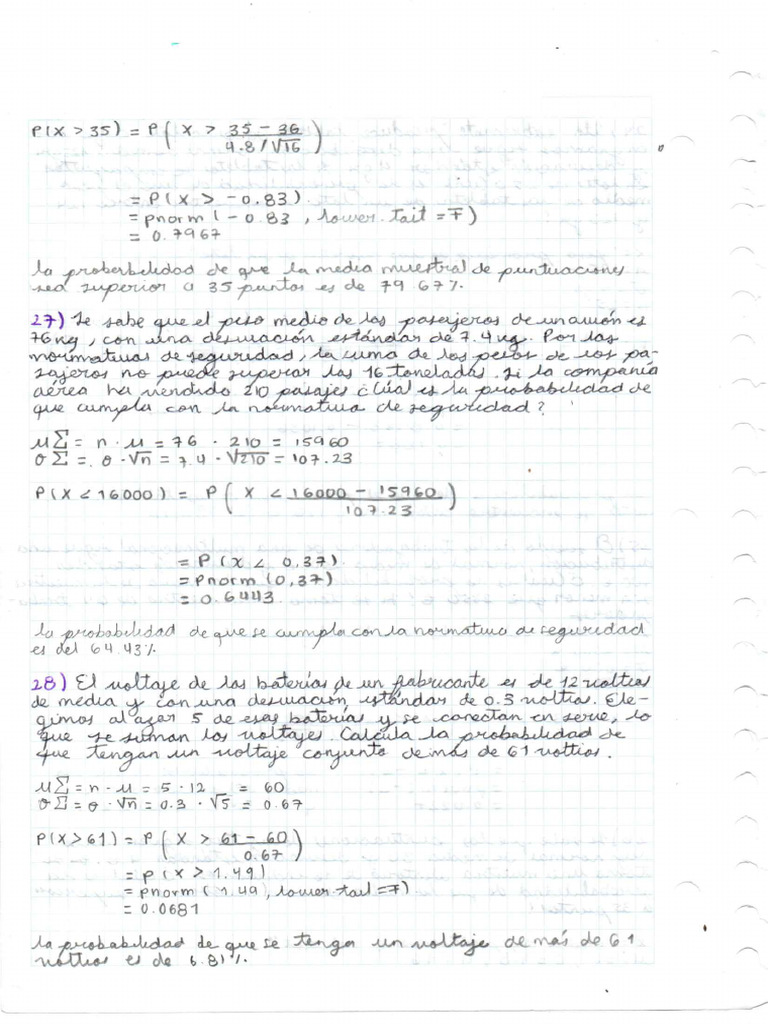 P(X > 35) = P( X > 35 - 36 / 4.8/√16 )
= P(X > -0.83)
= pnorm (-0.83, lower.Tait = F)
= 0.7967
la proberbilidad de que la media muestral de puntuaciones
sea superior a 35 puntos es de 79.67%.
27) Se sabe que el peso medio de los pasajeros de un avión es
76kg, con una desviación estándar de 7.4kg. Por las
normativas de seguridad, la suma de los pesos de los pa-
sajeros no puede superar las 16 toneladas. Si la compañía
aérea ha vendido 210 pasajes ¿Cúal es la probabilidad de
que cumpla con la normativa de seguridad?
μΣ = n · μ = 76 · 210 = 15960
σΣ = σ · √n = 7.4 · √210 = 107.23
P(X < 16000) = P( X < 16000 - 15960 / 107.23 )
= P(X < 0,37)
= Pnorm (0,37)
= 0.6443
la probabilidad de que se cumpla con la normativa de seguridad
es del 64.43%
28) El voltaje de las baterías de un fabricante es de 12 voltios
de media y con una desviación estándar de 0.3 voltios. Ele-
gimos al azar 5 de esas baterías y se conectan en serie, lo
que se suman los voltajes. Calcula la probabilidad de
que tengan un voltaje conjunto de más de 61 voltios.
μΣ = n · μ = 5 · 12 = 60
σΣ = σ · √n = 0.3 · √5 = 0.67
P(X > 61) = P( X > 61 - 60 / 0.67 )
= P(X > 1.49)
= pnorm (1.49, lower.tail = F)
= 0.0681
la probabilidad de que se tenga un voltaje de más de 61
voltios es de 6.81%.